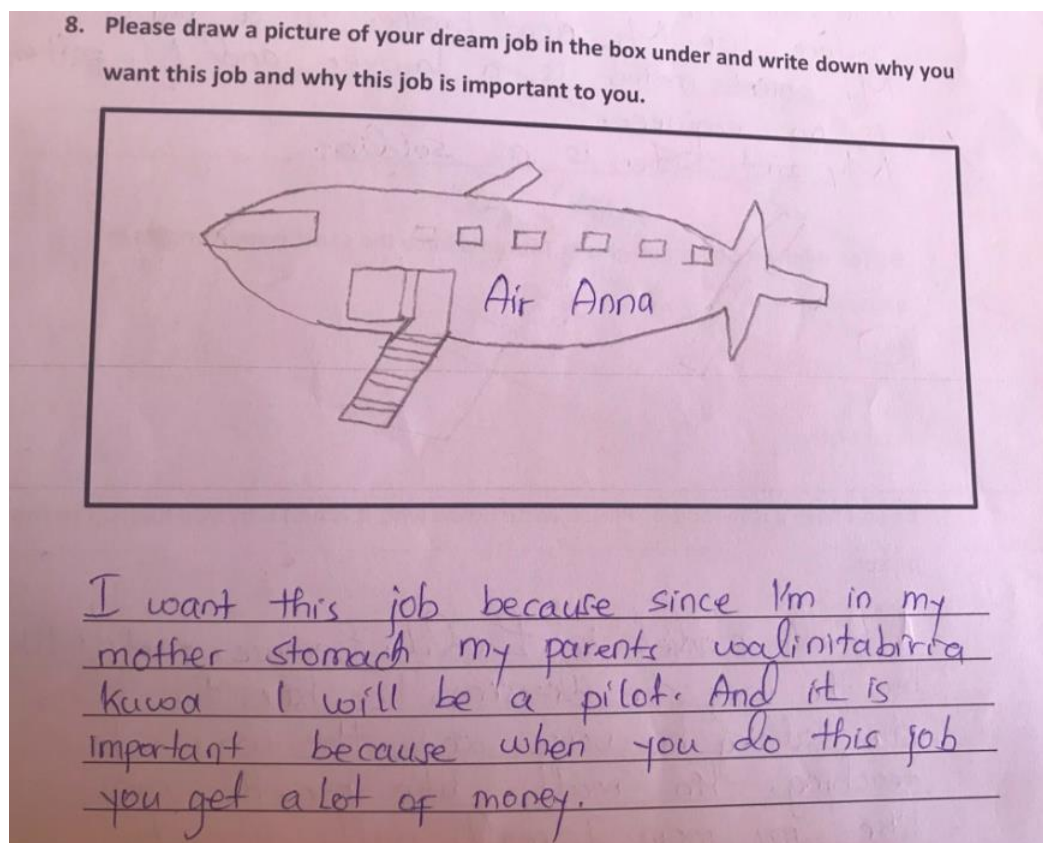 8. Please draw a picture of your dream job in the box under and write down why you
want this job and why this job is important to you.
Air Anna
I want this job because since I'm in my
mother stomach my parents walinitabiria
Kuwa I will be a pilot. And it is
important because when you do this job
you get a lot of money.